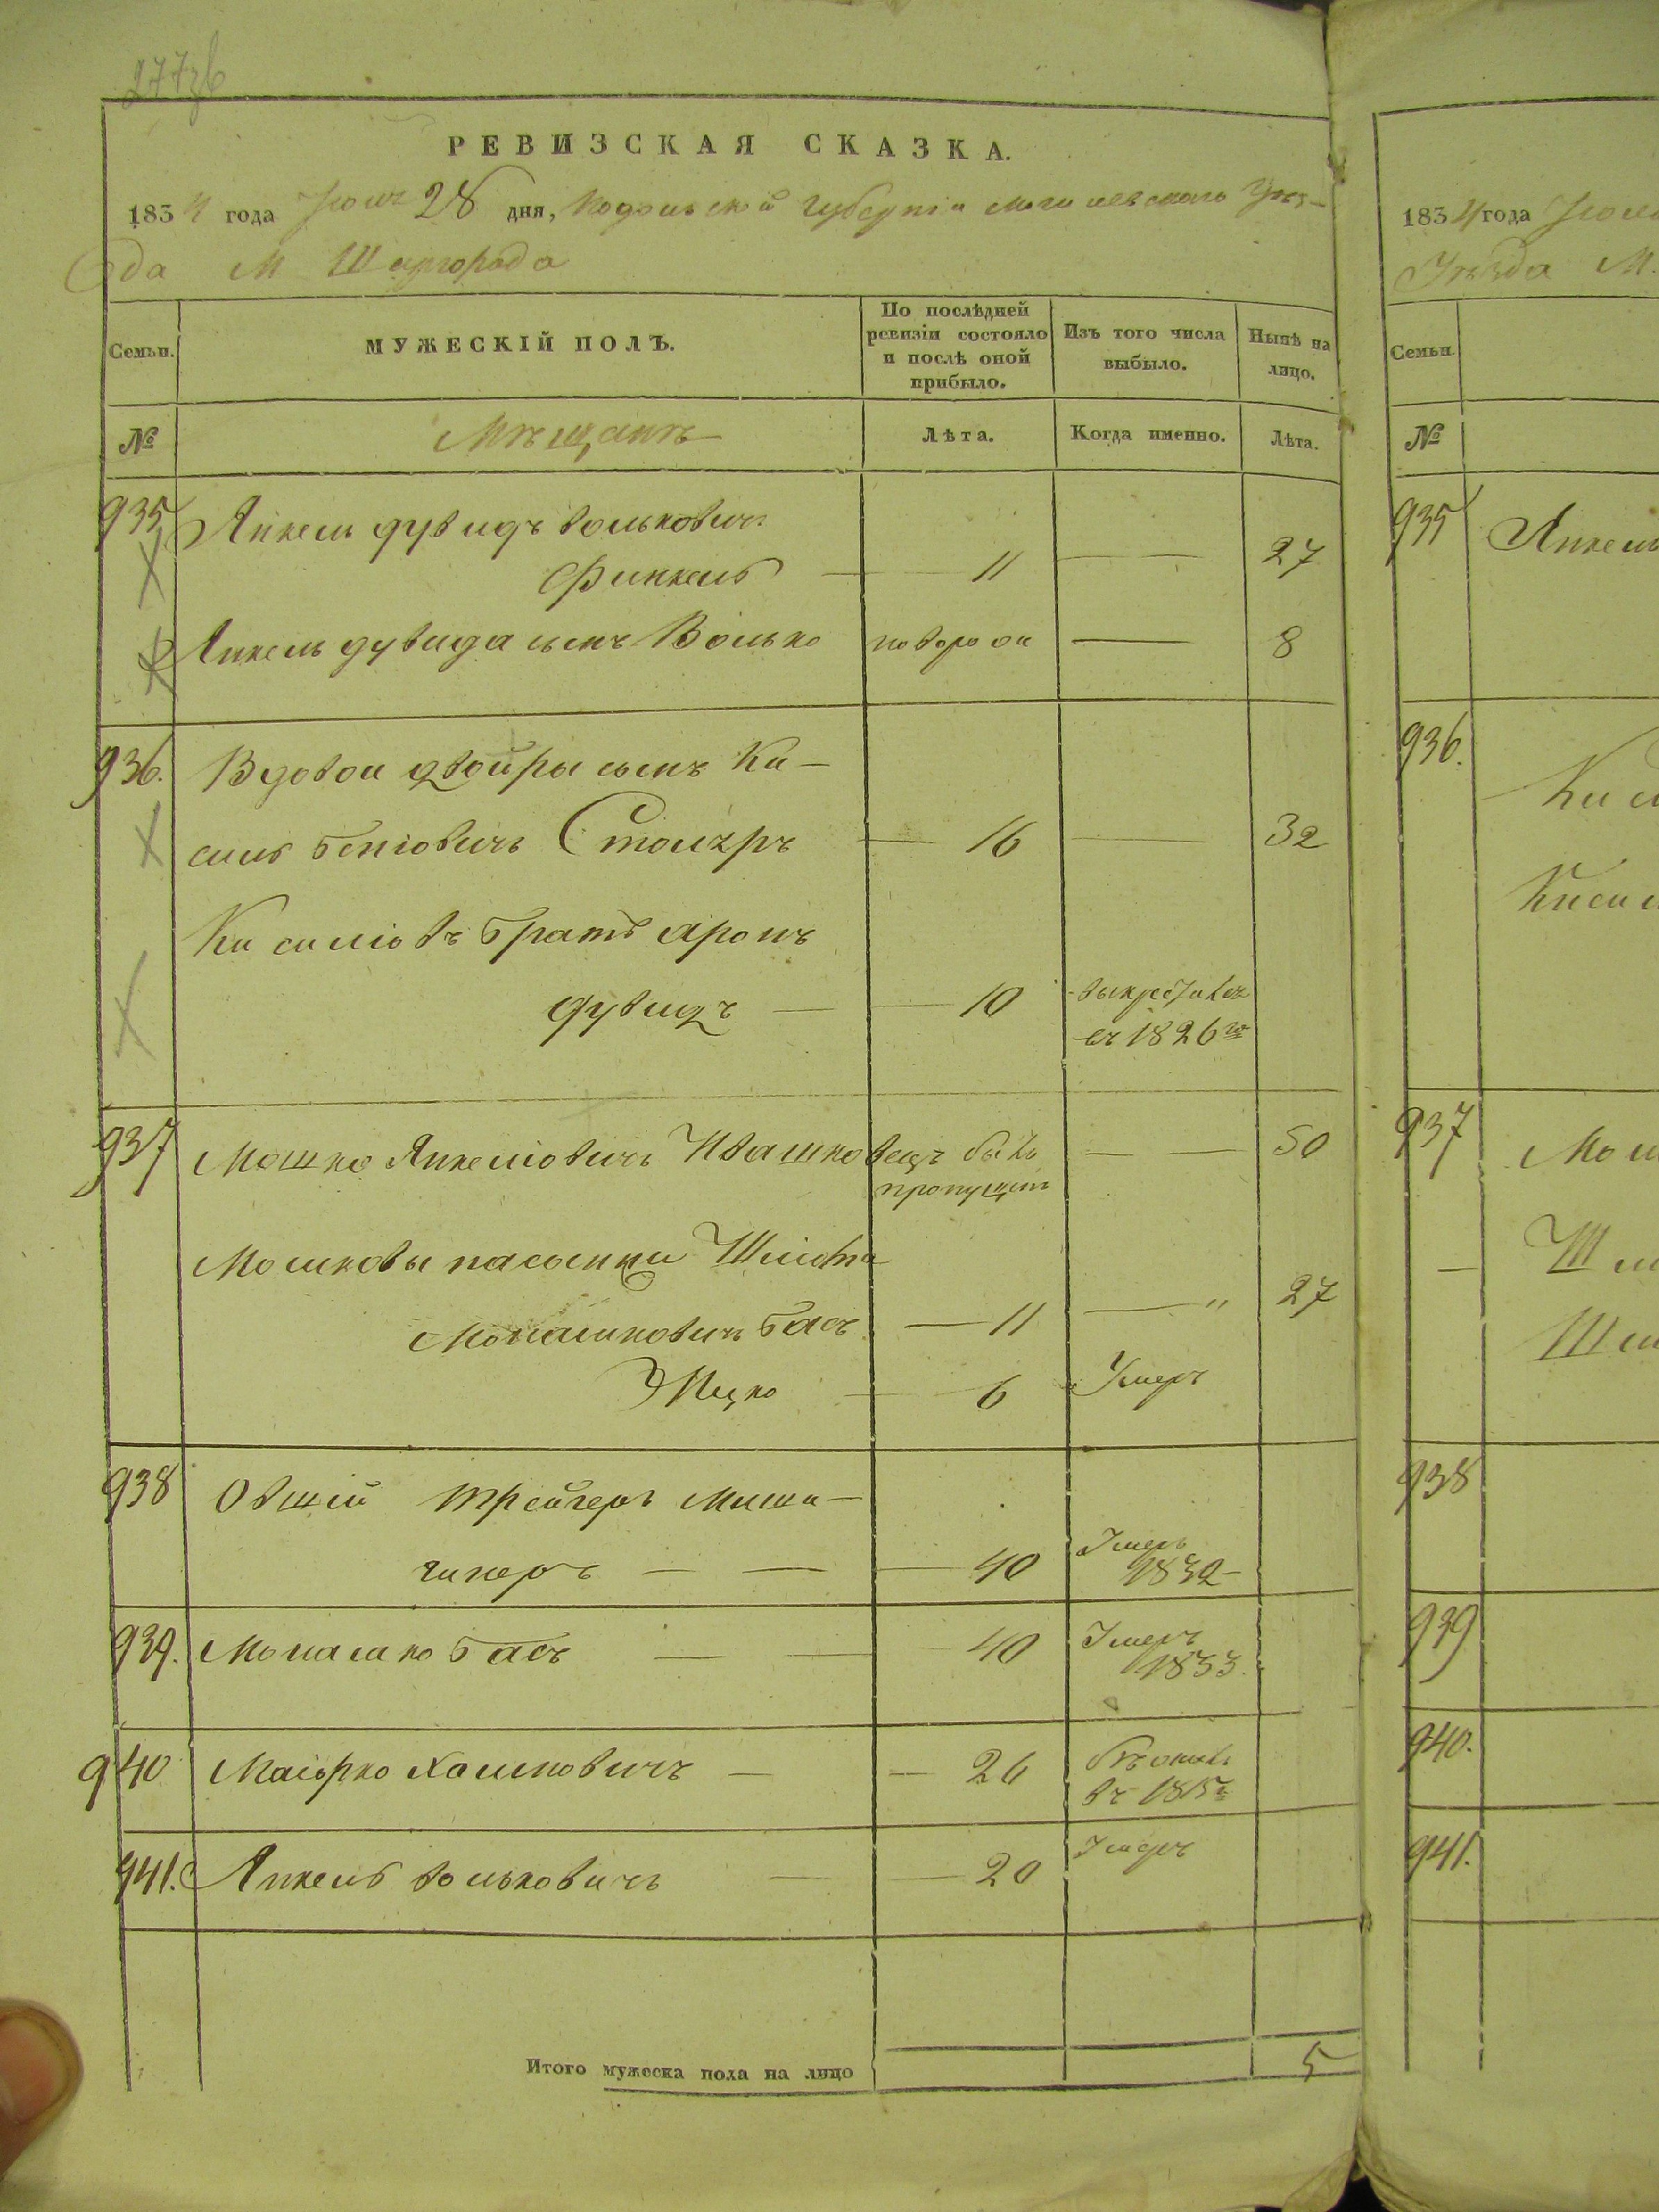 277об
РЕВИЗСКАЯ СКАЗКА.
1834 года Iюня 28 дня, Подольской губернiи Могилевского Уѣз-
да М Шаргорода
Семьи.
МУЖЕСКIЙ ПОЛЪ.
По послѣдней ревизiи состояло и послѣ оной прибыло.
Изъ того числа выбыло.
Нынѣ на лицо.
№
Мѣщанъ
Лѣта.
Когда именно.
Лѣта.
935 Янкель дувидъ вольковичъ
Финкель — 11 — 27
Янкель дувида сынъ Волько новорож — 8
936. Вдовои двойры сынъ Ки-
силь Бенiовичъ Столяръ — 16 — 32
Кисилiовъ братъ аронъ
дувидъ — 10 выкрестився
въ 1826го
937 Мошко Янкелiовичъ Ивашковецъ былъ — 50
пропущен
Мошковы пасынки Шлiома
Монашковичъ Басъ — 11 — " 27
Ицко — 6 Умеръ
938 Овшiй Трейгеръ Миша-
40 Умеръ
1832
939. Монашко Басъ — 40 Умеръ
1833.
940 Маiорко Хаимовичъ — 26 бѣжалъ
въ 1815г
941. Янкель вольковичъ — 20 Умеръ
Итого мужеска пола на лицо 5
1834 года Iюня
Уѣзда М.
Семьи.
№
935 Янкель
936.
Ки
Киси
937 Мош
Шл
Шл
938
939
940.
941.